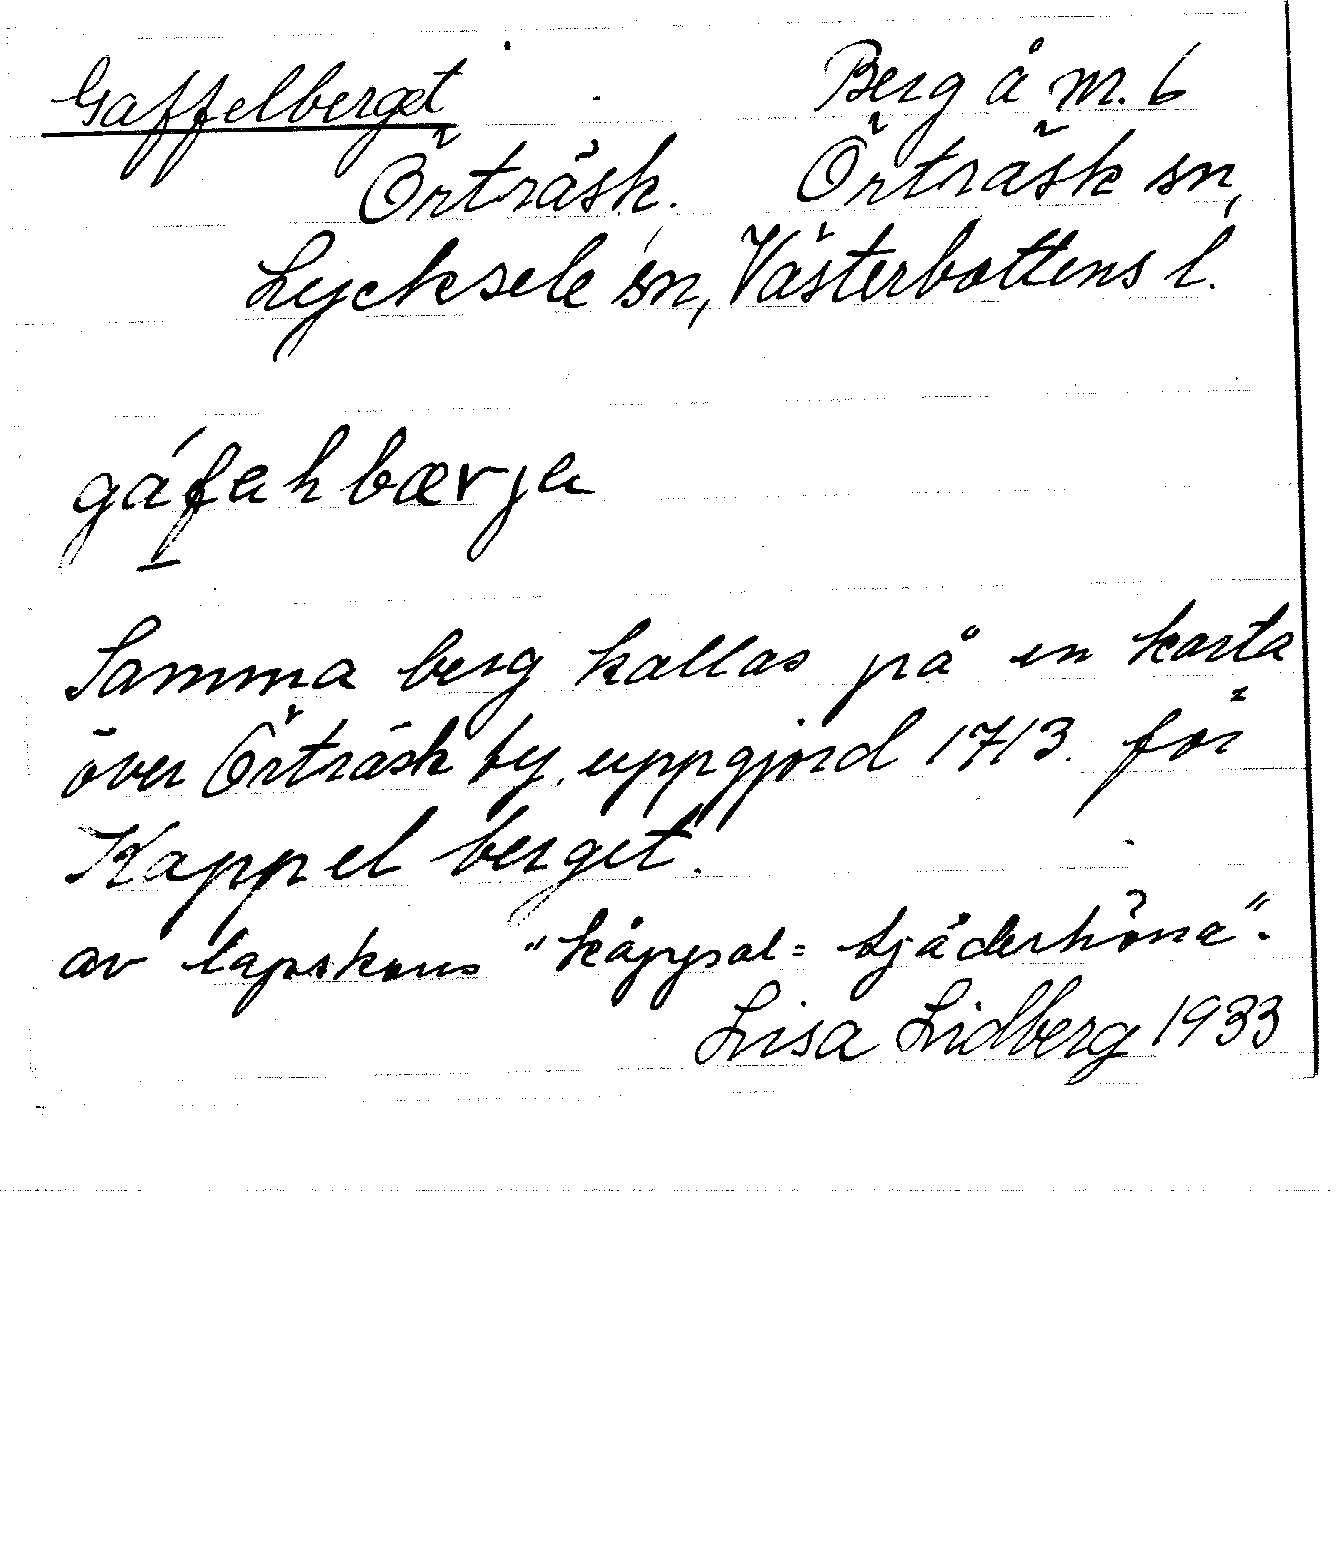 Gaffelberget Berg å nr. 6
Örträsk. Örträsk sn,
Lycksele sn, Västerbottens l.
gáfahbærja
Samma berg kallas på en karta
över Örträsk by, uppgjord 1713. för
Kappelberget.
av lapskans "kåppal = tjäderhöna".
Lisa Lidberg 1933